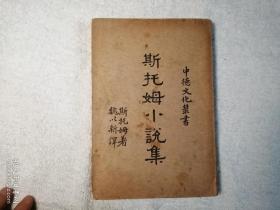 中德文化叢書
斯托姆小說集
斯托姆著
魏以新譯